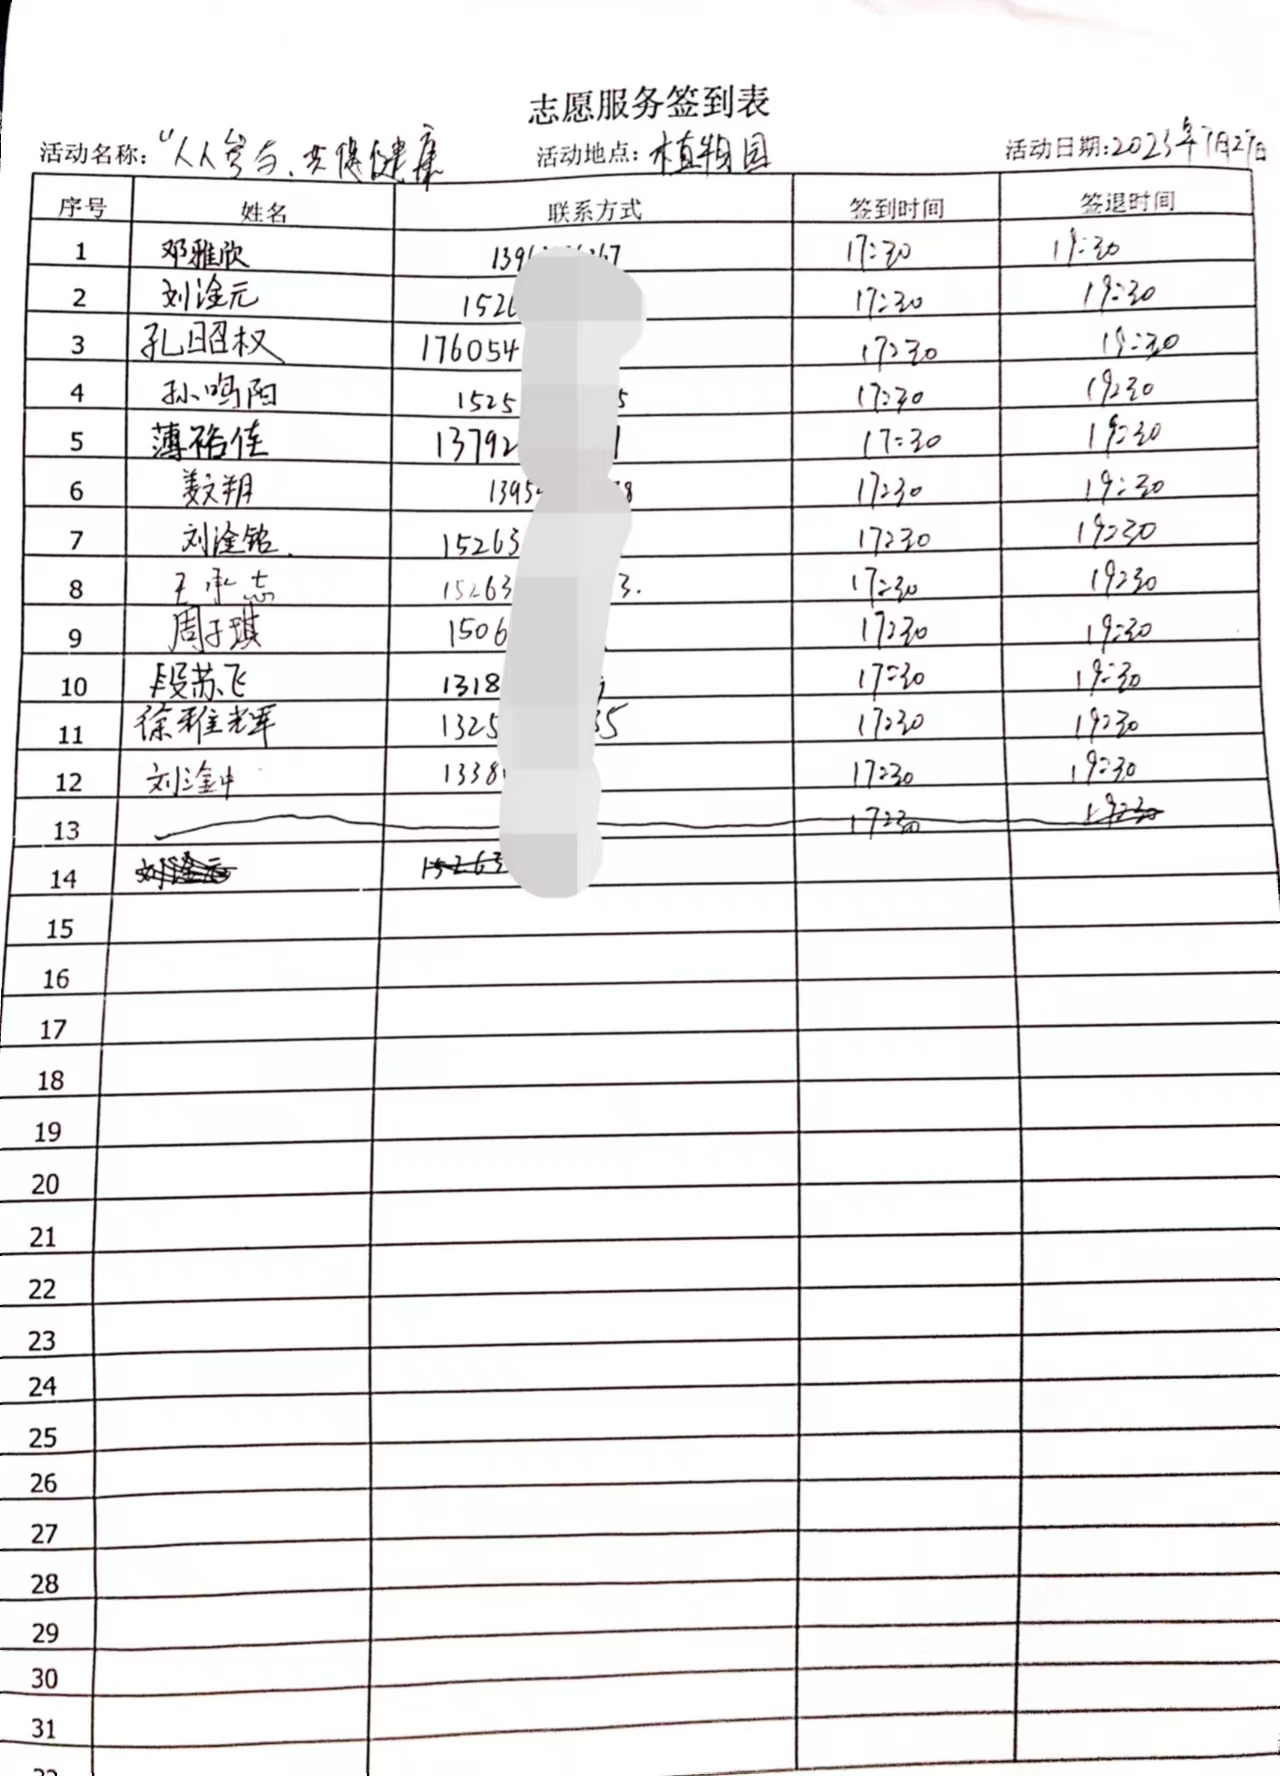 志愿服务签到表
活动名称："人人参与、共促健康 活动地点：植物园 活动日期：2023年7月27日
序号 姓名 联系方式 签到时间 签退时间
1 邓雅欣 139 67 17:30 19:30
2 刘淦元 152 17:30 19:30
3 孔昭权 176054 17:30 19:30
4 孙鸣阳 1525 5 17:30 19:30
5 薄裕佳 13792 1 17:30 19:30
6 姜文朔 1395 8 17:30 19:30
7 刘淦铭 15263 17:30 19:30
8 王承志 15263 3. 17:30 19:30
9 周子琪 1506 17:30 19:30
10 段苏飞 1318 17:30 19:30
11 徐雅辉 1325 35 17:30 19:30
12 刘淦中 1338 17:30 19:30
13 17:30 19:30
14 刘淦元 15263
15
16
17
18
19
20
21
22
23
24
25
26
27
28
29
30
31